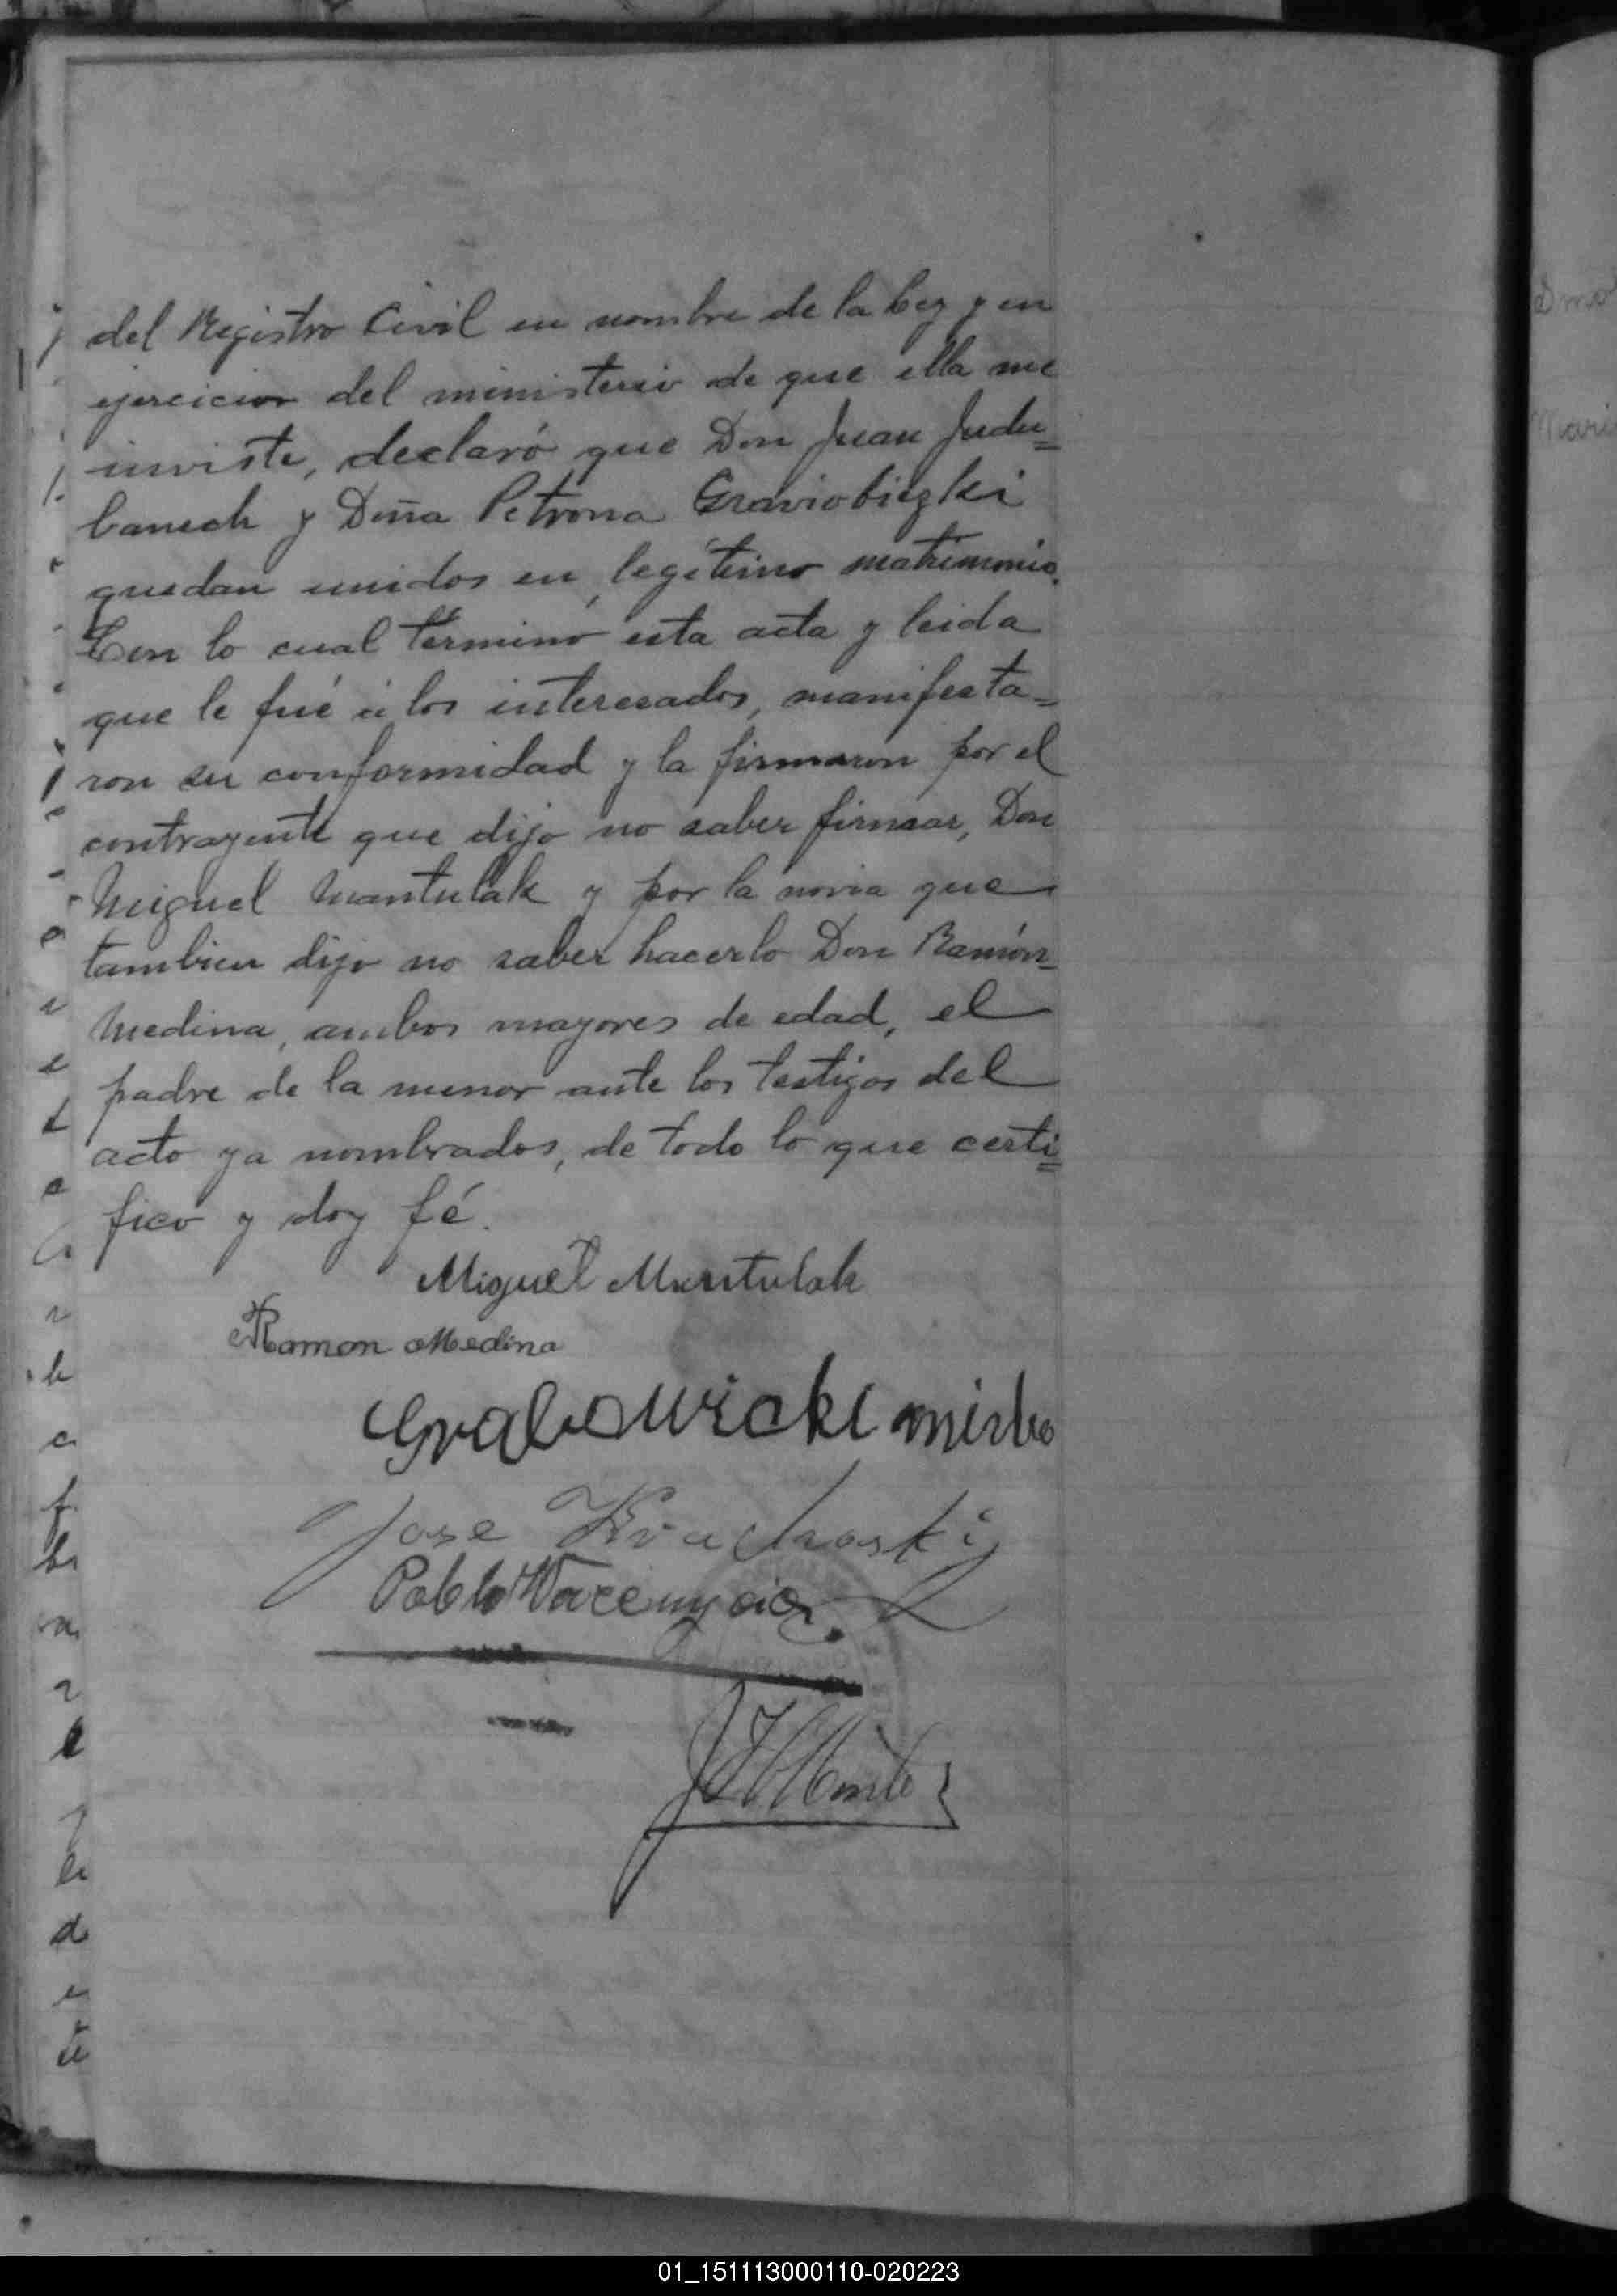 del Registro Civil en nombre de la Ley y en
ejercicio del ministerio de que ella me
inviste, declaró que Don Juan Judu=
banech y Doña Petrona Graviobiezki
quedan unidos en legítimo matrimonio.
Con lo cual terminó esta acta y leida
que le fué á los interesados, manifesta=
ron su conformidad y la firmaron por el
contrayente que dijo no saber firmar, Don
Miguel Mantulak y por la novia que
tambien dijo no saber hacerlo Don Ramón
Medina, ambos mayores de edad, el
padre de la menor ante los testigos del
acto ya nombrados, de todo lo que certi=
fico y doy fé.
Miguel Muntulak
Ramon Medina
Grabowicki
Jose
Pablo
01_151113000110-020223